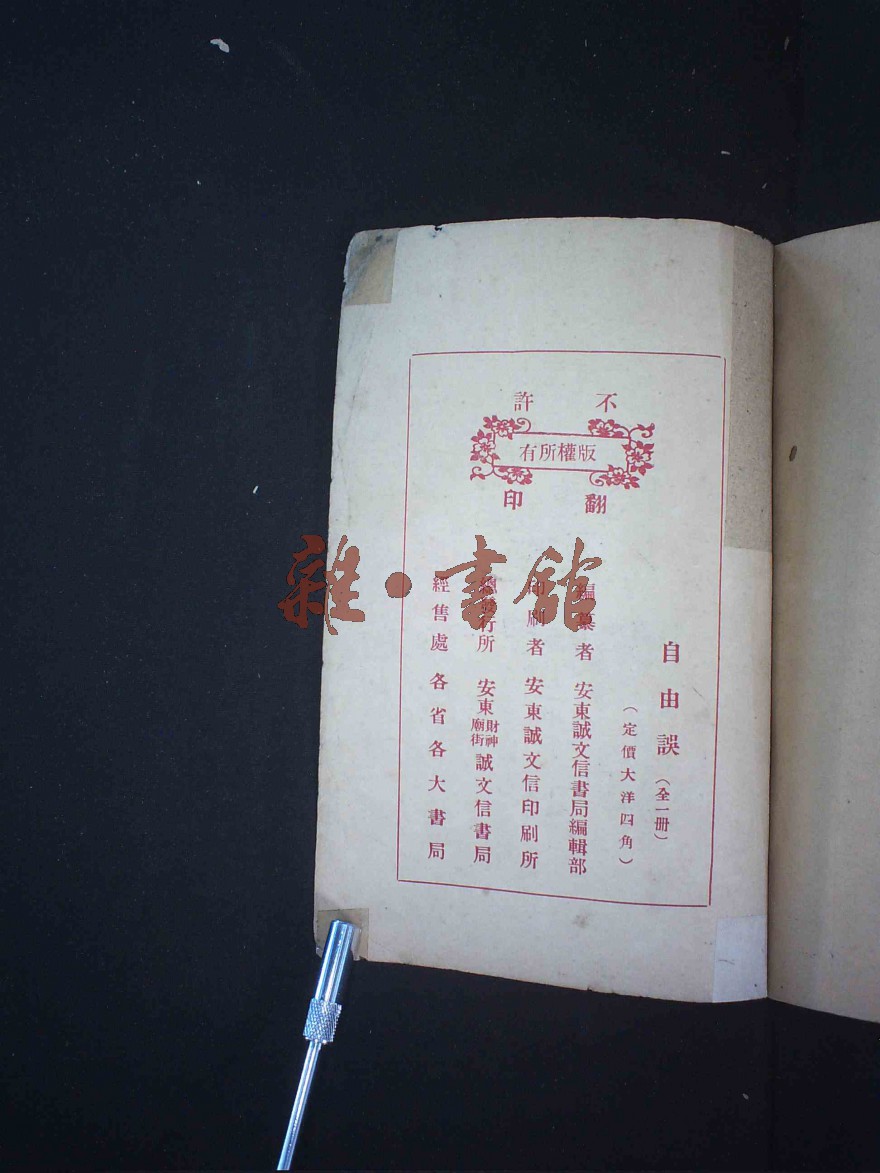 不許
版權所有
翻印
自由誤（全一冊）
（定價大洋四角）
編纂者 安東誠文信書局編輯部
印刷者 安東誠文信印刷所
總發行所 安東財神廟街誠文信書局
經售處 各省各大書局
雜·書館